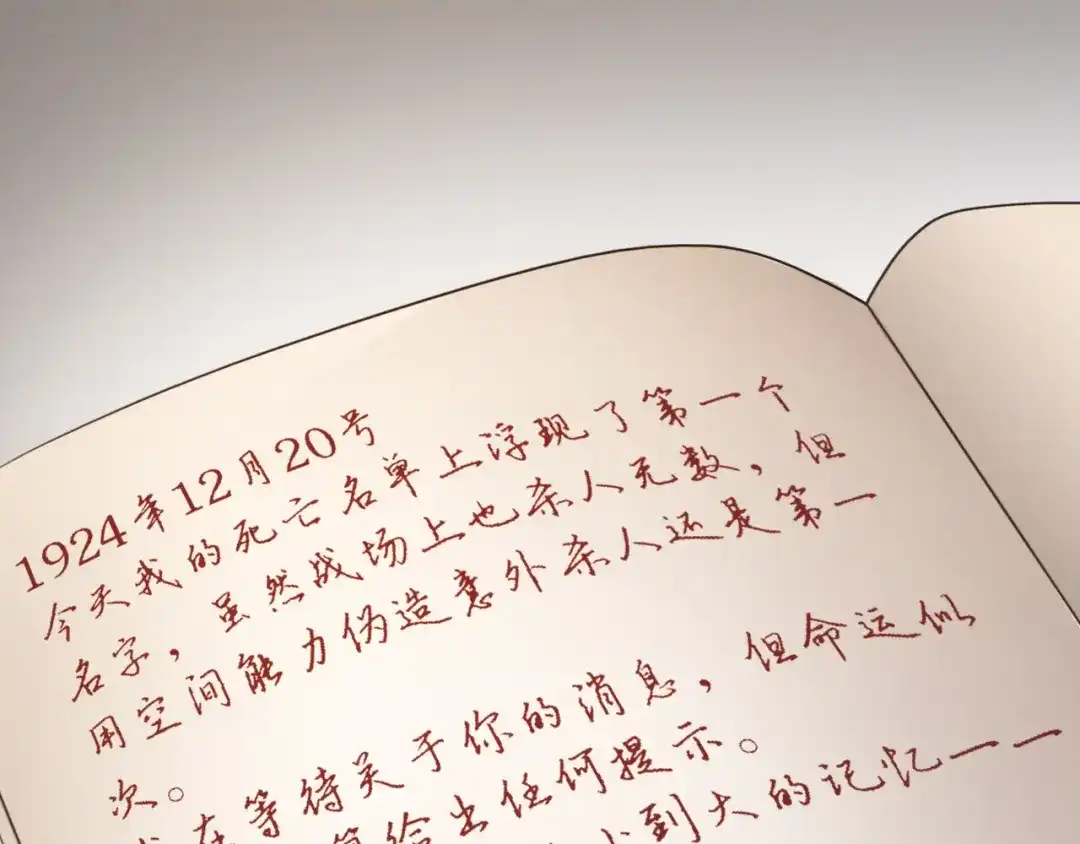 1924年12月20号
今天我的死亡名单上浮现了第一个
名字，虽然战场上也杀人无数，但
用空间能力伪造意外杀人还是第一
次。
在等待关于你的消息，但命运似
给出任何提示。
到大的记忆——